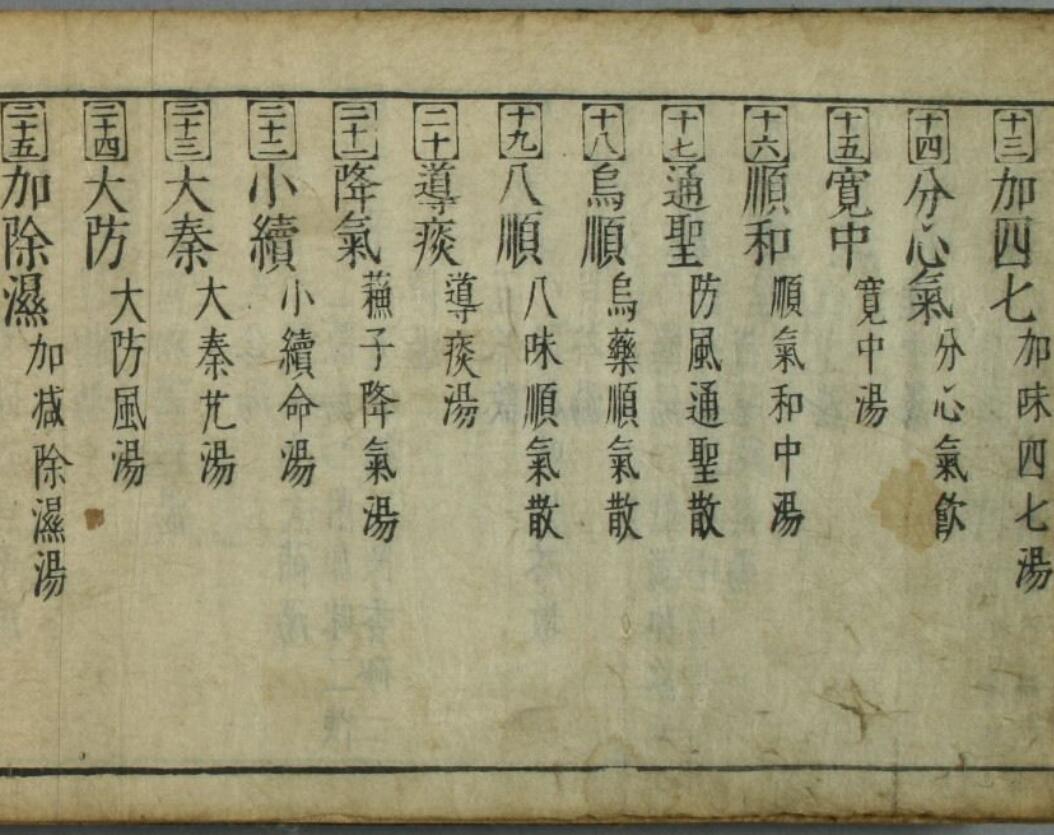 十三 加四七 加味四七湯
十四 分心氣 分心氣飲
十五 寛中 寛中湯
十六 順和 順氣和中湯
十七 通聖 防風通聖散
十八 烏順 烏藥順氣散
十九 八順 八味順氣散
二十 導痰 導痰湯
二十一 降氣 蘓子降氣湯
二十二 小續 小續命湯
二十三 大秦 大秦艽湯
二十四 大防 大防風湯
二十五 加除濕 加减除濕湯